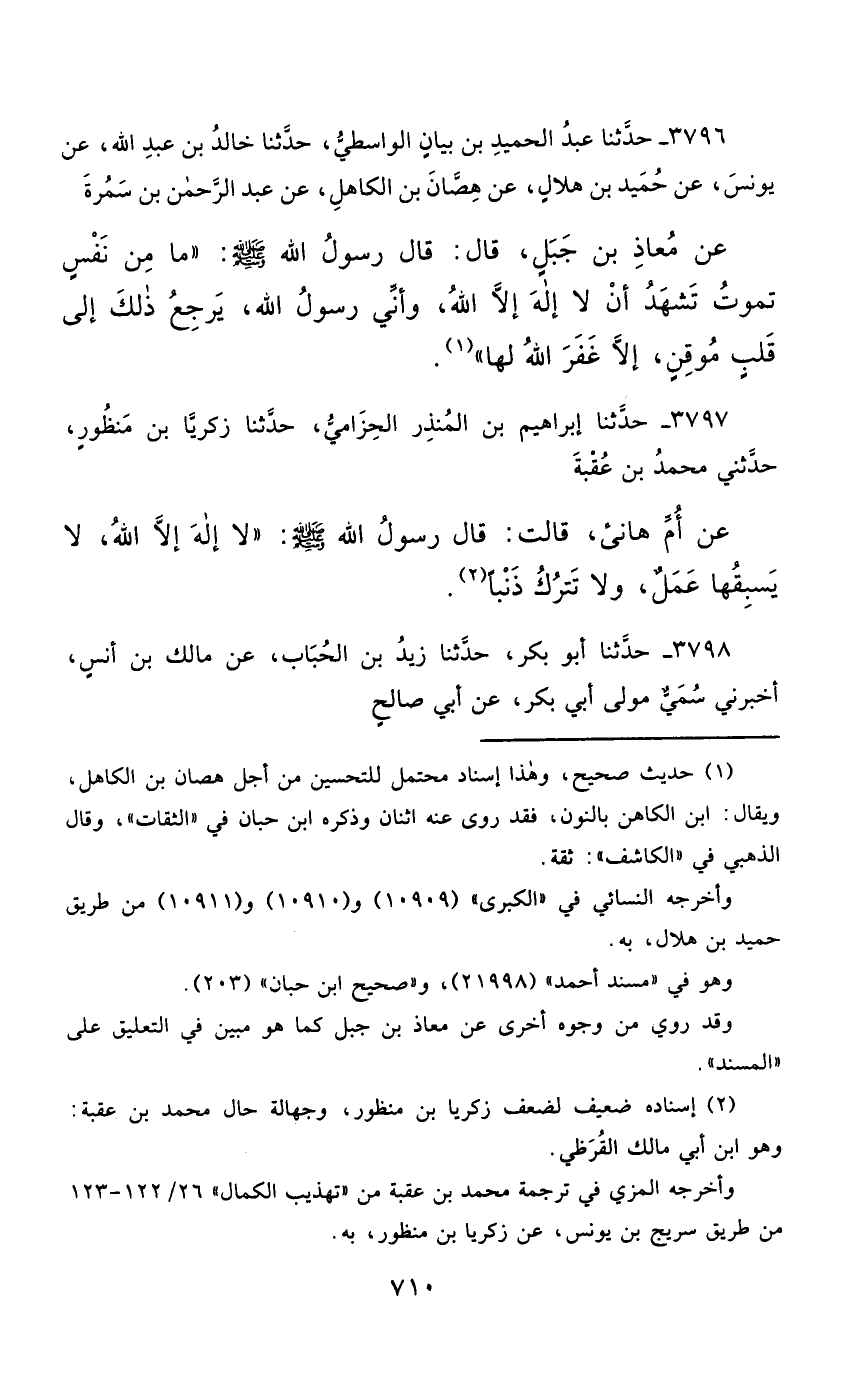 ٣٧٩٦ـ حدَّثنا عبدُ الحميدِ بن بيانٍ الواسطيُّ، حدَّثنا خالدُ بن عبدِ الله، عن
يونسَ، عن حُمَيد بن هلالٍ، عن هِصَّانَ بن الكاهلِ، عن عبد الرَّحمٰن بن سَمُرةَ
عن مُعاذِ بن جَبَلٍ، قال: قال رسولُ الله ﷺ: «ما مِن نَفْسٍ
تموتُ تَشهَدُ أنْ لا إلٰهَ إلاَّ اللهُ، وأنِّي رسولُ الله، يَرجِعُ ذٰلكَ إلى
قَلبٍ مُوقِنٍ، إلاَّ غَفَرَ اللهُ لها»(١).
٣٧٩٧ـ حدَّثنا إبراهيم بن المُنذِر الحِزَاميُّ، حدَّثنا زكريَّا بن مَنظُورٍ،
حدَّثني محمدُ بن عُقْبةَ
عن أُمِّ هانئ، قالت: قال رسولُ الله ﷺ: «لا إلٰهَ إلاَّ اللهُ، لا
يَسبِقُها عَمَلٌ، ولا تَترُكُ ذَنْباً(٢).
٣٧٩٨ـ حدَّثنا أبو بكر، حدَّثنا زيدُ بن الحُبَاب، عن مالك بن أنسٍ،
أخبرني سُمَيٌّ مولى أبي بكر، عن أبي صالحٍ
(١) حديث صحيح، وهٰذا إسناد محتمل للتحسين من أجل هصان بن الكاهل،
ويقال: ابن الكاهن بالنون، فقد روى عنه اثنان وذكره ابن حبان في «الثقات»، وقال
الذهبي في «الكاشف»: ثقة.
وأخرجه النسائي في «الكبرى» (١٠٩٠٩) و(١٠٩١٠) و(١٠٩١١) من طريق
حميد بن هلال، به.
وهو في «مسند أحمد» (٢١٩٩٨)، و«صحيح ابن حبان» (٢٠٣).
وقد روي من وجوه أخرى عن معاذ بن جبل كما هو مبين في التعليق على
«المسند».
(٢) إسناده ضعيف لضعف زكريا بن منظور، وجهالة حال محمد بن عقبة:
وهو ابن أبي مالك القُرَظي.
وأخرجه المزي في ترجمة محمد بن عقبة من «تهذيب الكمال» ٢٦/ ١٢٢-١٢٣
من طريق سريج بن يونس، عن زكريا بن منظور، به.
٧١٠